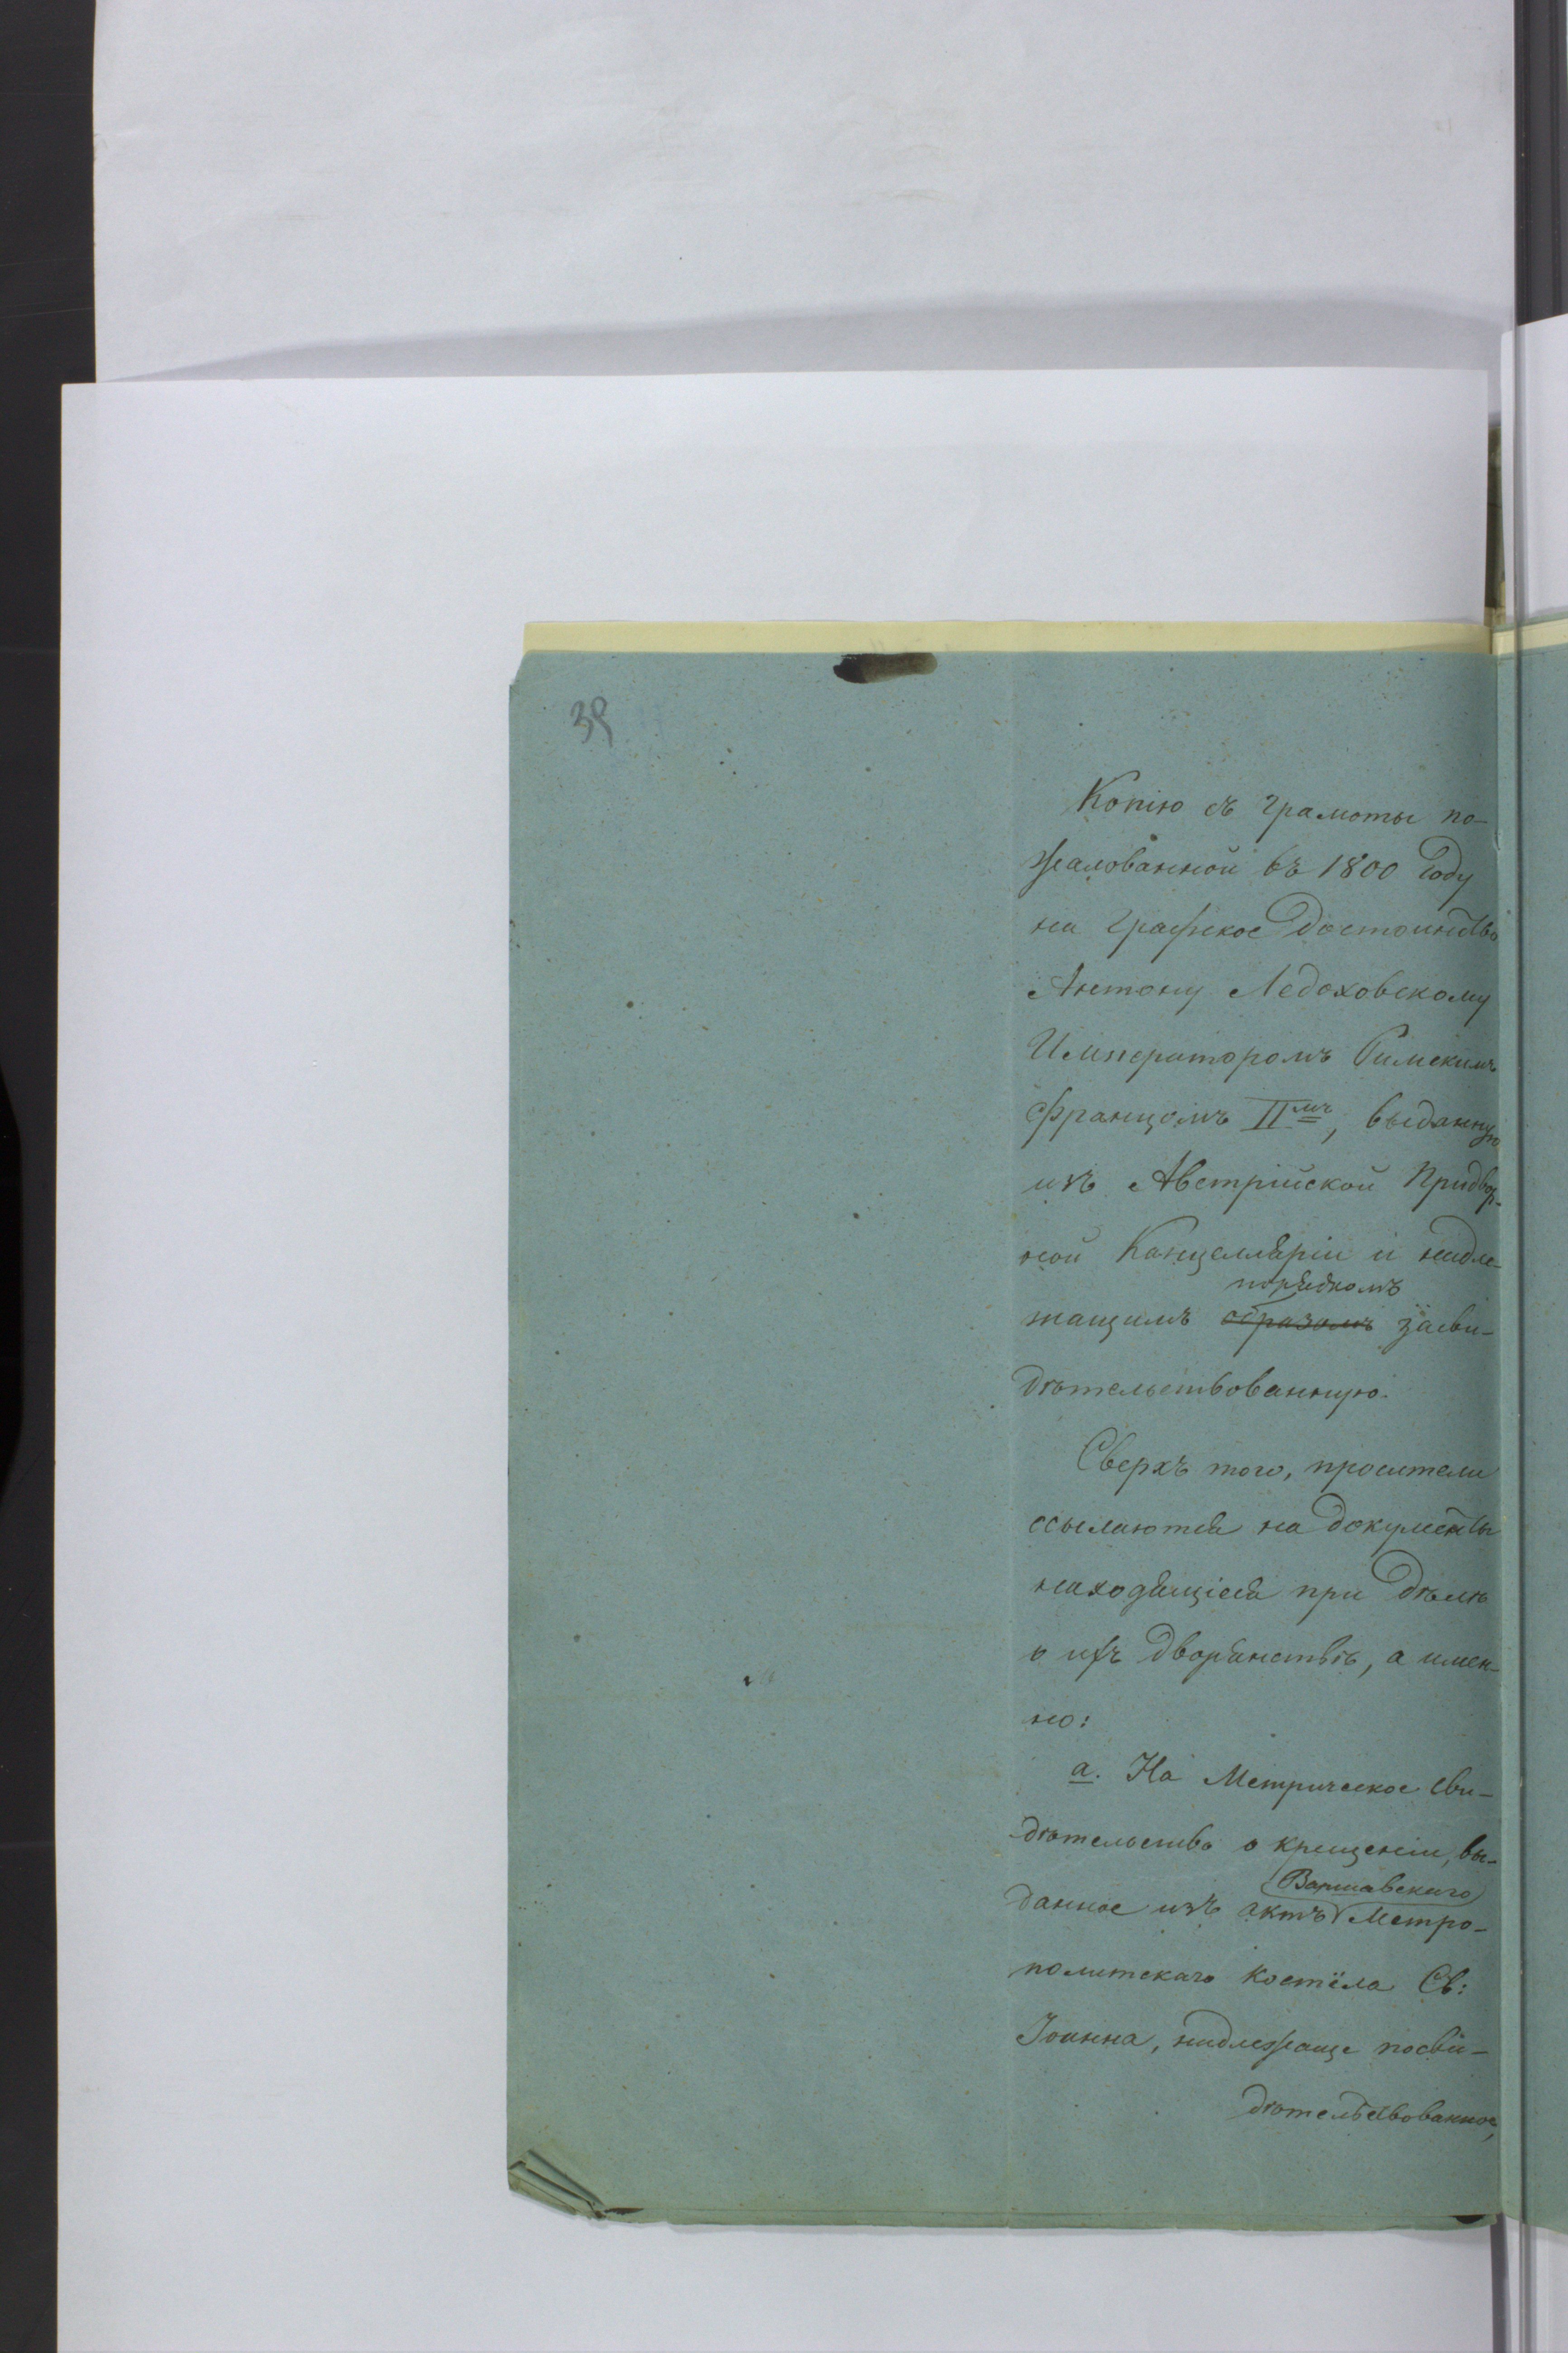 39
Копію съ грамоты по-
жалованной въ 1800 Году
на Графское Достоинство
Антону Ледоховскому
Императоромъ Римскимъ
Францомъ II мъ, выданную
изъ Австрійской Придвор-
ной Канцелляріи и надле-
порядкомъ
жащимъ образомъ засви-
дѣтельствованную.
Сверхъ того, просители
ссылаются на документы
находящіеся при Дѣлѣ
о ихъ Дворянствѣ, а имен-
но:
а. На Метрическое сви-
дѣтельство о крещеніи, вы-
Варшавскаго
данное изъ актъ Метро-
политскаго Костёла Св:
Іоанна, надлежаще посви-
дѣтельствованное,